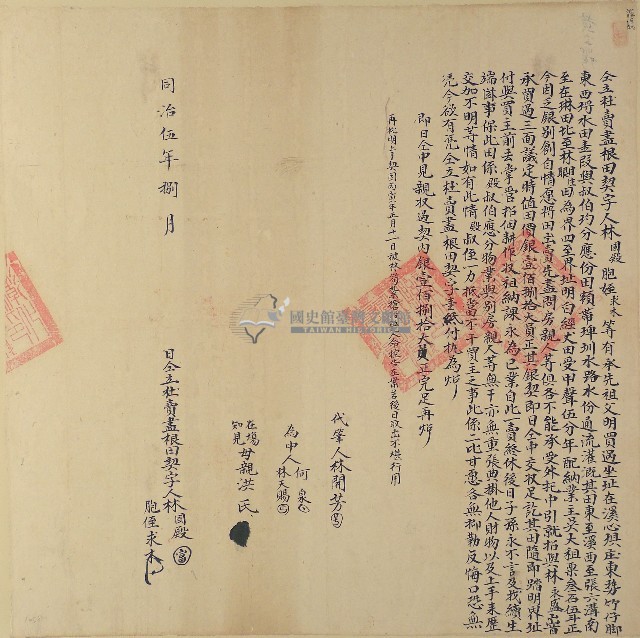 仝立杜賣盡根田契字人林固殿胞姪求木等有承先祖父明買過坐址在溪心埧庄東勢竹仔脚
東西埒水田壹段與叔伯均分應份田額帶埤圳水路水份通流灌溉其田東至溪西至張六溝南
至在琳田北至林聰田為界四至界址明白經丈田受甲聲伍分年配納業主吳大租票叁石伍斗正
今因乏銀別創自情愿將田出賣先盡問房親人等俱各不能承受外托中引就招與林
承買過三面議定時值田價銀壹佰捌拾大員正其銀契即日仝中交收足訖其田隨即踏明界址
付與買主前去掌管招佃耕作收租納課永為己業自此一賣終休後日子孫永不言及找續生
端滋事保此田係殿叔伯應分物業與別房親人等無干亦無重張典掛他人財物以及上手來歷
交加不明等情如有此情殿叔侄一力抵當不干買主之事此係二比甘愿各無抑勒反悔口恐無
凭今欲有凭仝立杜賣盡根田契字壹紙付執為炤
即日仝中見親收過契內銀壹佰捌拾大員正完足再炤
再批明上手契因丙寅年五月十一日被林
在案若後日收出不堪行用
代筆人林開芳
為中人何泉
林天賜
在場知見母親洪氏
同治伍年捌月
日仝立杜賣盡根田契字人林固殿
胞侄求木
國史館臺灣文獻館
TAIWAN HISTORICA